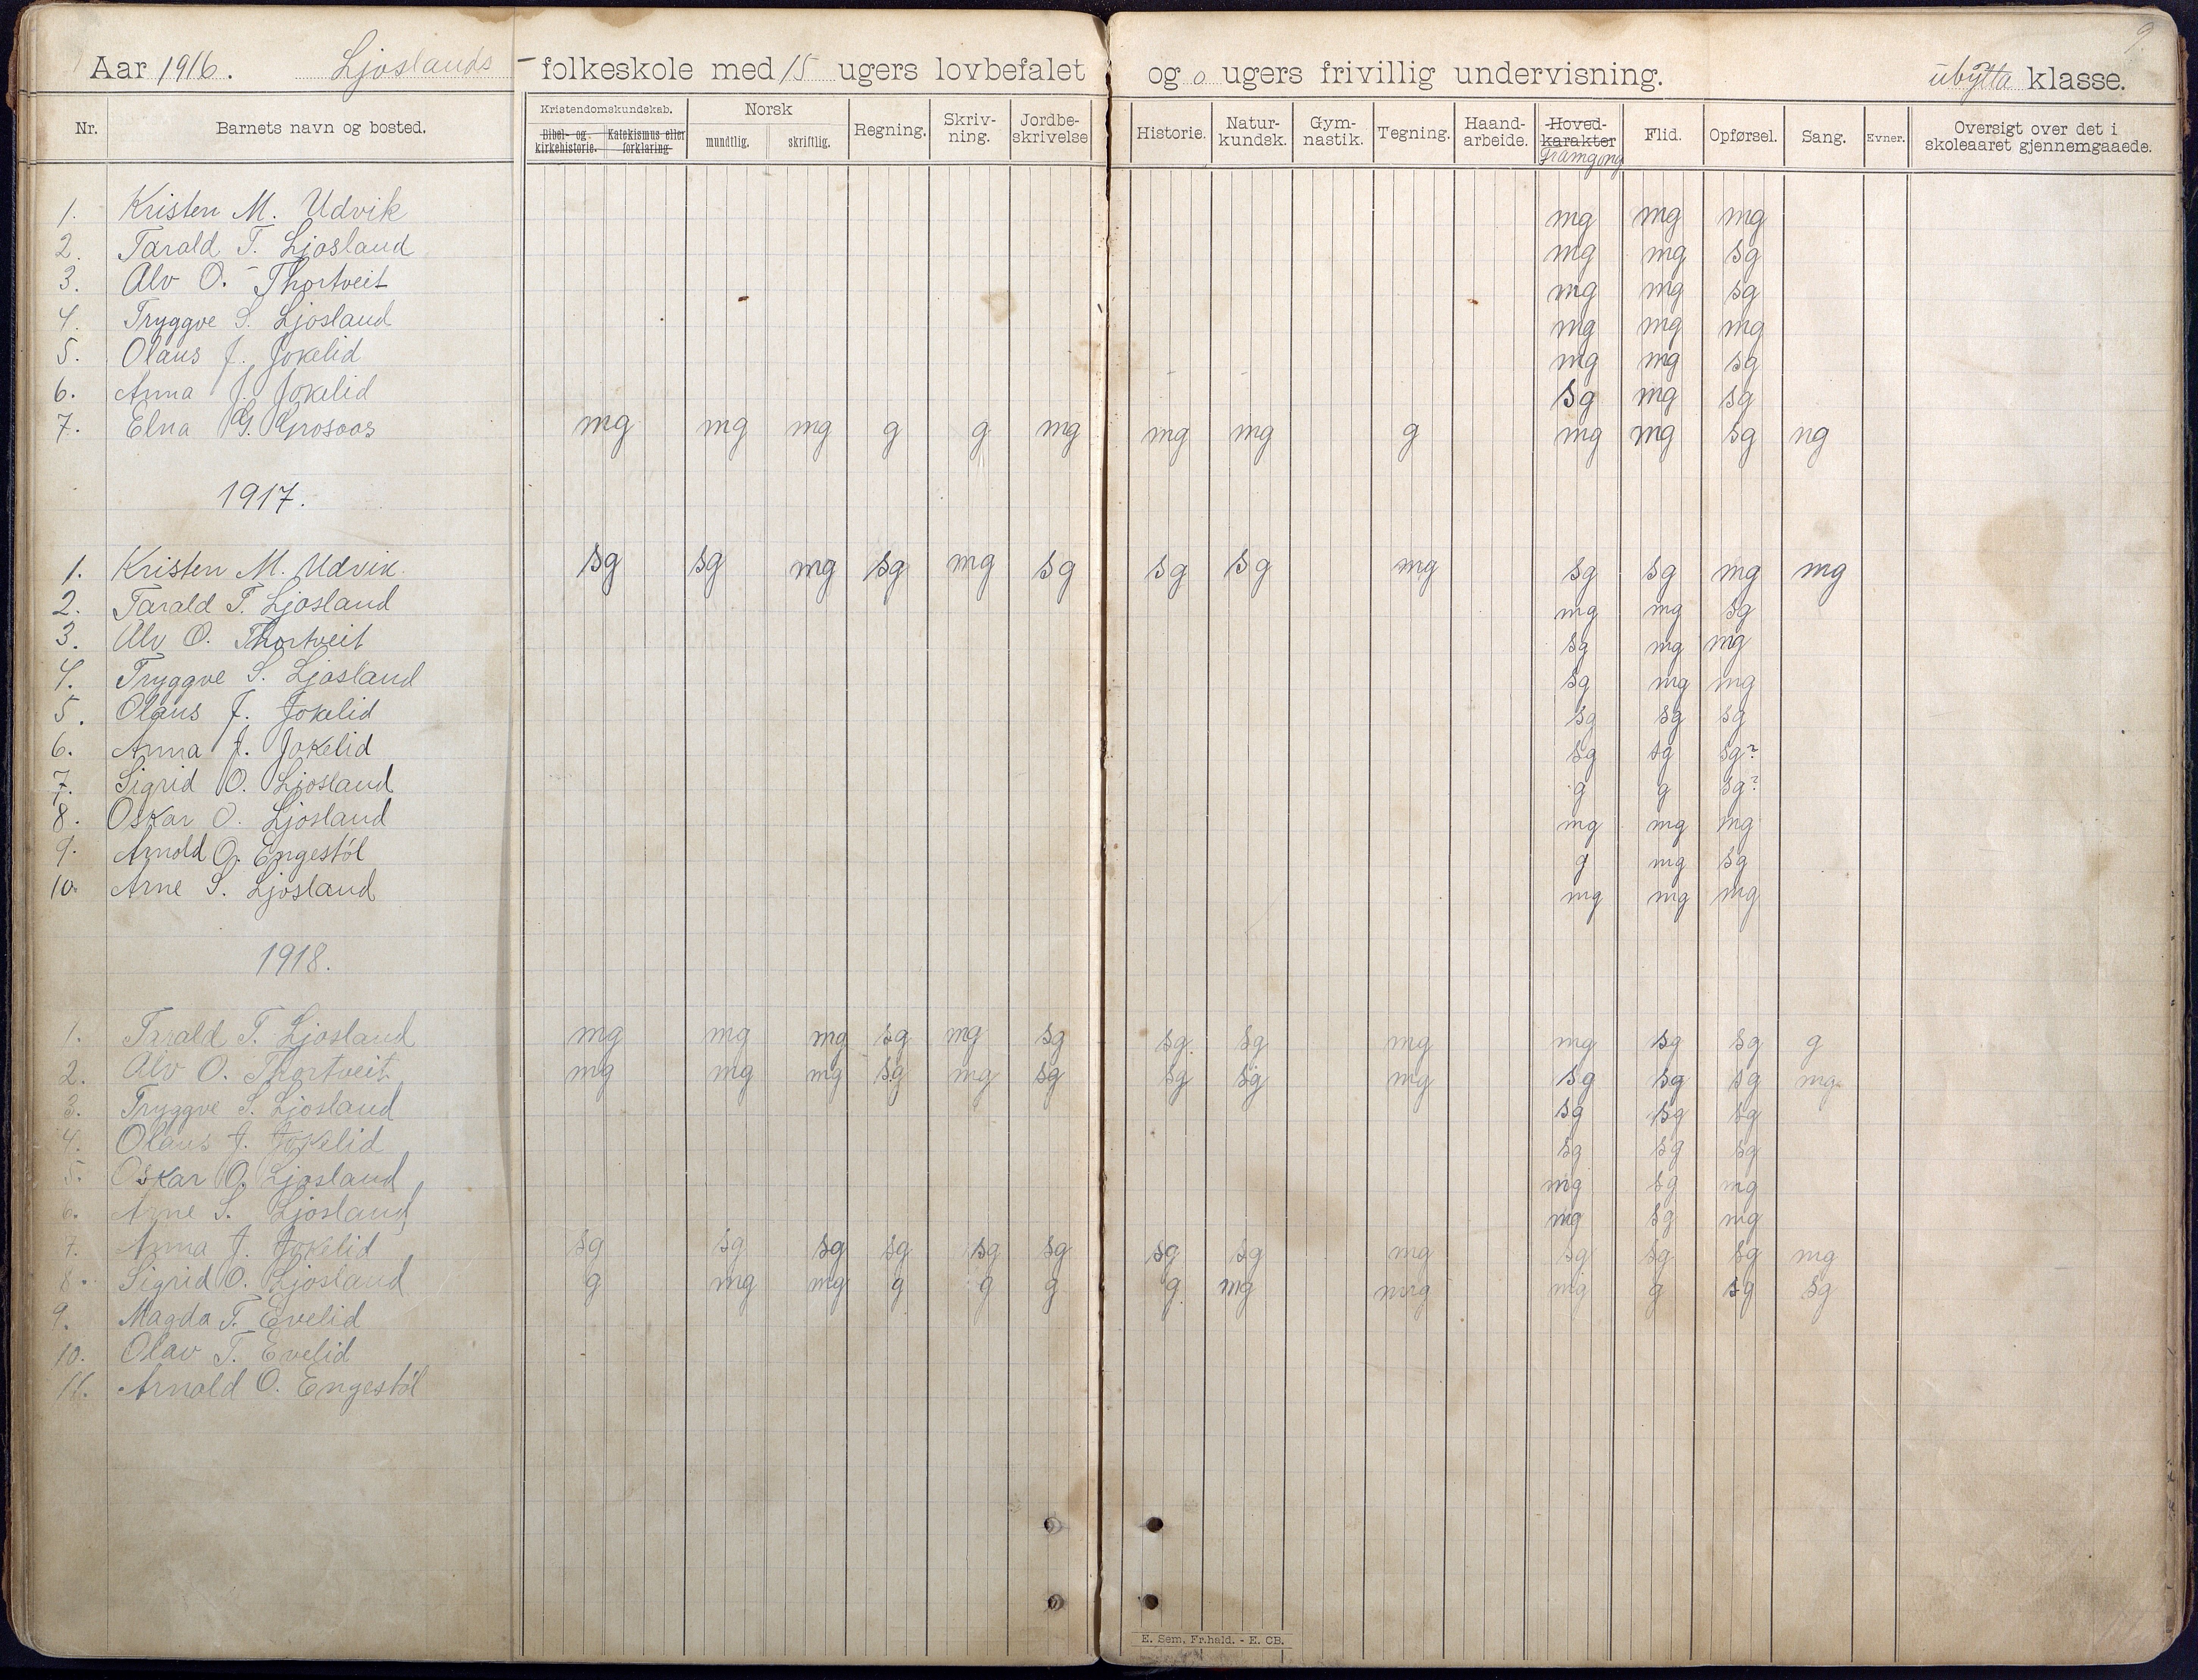 9
Aar 1916. Ljoslands - folkeskole med 15 ugers lovbefalet og 0 ugers frivillig undervisning. ubytta klasse.
Kristendomskundskab. Norsk
Nr. Barnets navn og bosted. Bibel- og kirkehistorie. Katekismus eller forklaring mundtlig. skriftlig. Regning. Skriv-ning. Jordbe-skrivelse Historie. Natur-kundsk. Gym-nastik. Tegning. Haand-arbeide. Hoved-karakter Framgong Flid. Opførsel. Sang. Evner. Oversigt over det i skoleaaret gjennemgaaede.
1. Kristen M. Udvik mg mg mg
2. Tarald T. Ljosland mg mg sg
3. Alv O. Thortveit mg mg sg
4. Tryggve S. Ljosland mg mg mg
5. Olaus J. Jokelid mg mg sg
6. Anna J. Jokelid sg mg sg
7. Elna G. mg mg mg g g mg mg mg g mg mg sg ng
1917.
1. Kristen M. Udvik. sg sg mg sg mg sg sg sg mg sg sg mg mg
2. Tarald T. Ljosland mg mg sg
3. Alv O. Thortveit sg mg mg
4. Tryggve S. Ljosland sg mg mg
5. Olaus J. Jokelid sg sg sg
6. Anna J. Jokelid sg sg sg?
7. Sigrid O. Ljosland g g sg?
8. Oskar O. Ljosland mg mg mg
9. Arnold O. Engestøl g mg sg
10. Arne S. Ljosland mg mg mg
1918.
1. Tarald T. Ljosland mg mg mg sg mg sg sg. sg mg mg sg sg g
2. Alv O. Thortveit mg mg mg sg mg sg sg sg mg sg sg sg mg.
3. Tryggve S. Ljosland sg sg sg
4. Olaus J. Jokelid sg sg sg
5. Oskar O. Ljosland mg sg mg
6. Arne S. Ljosland mg sg mg
7. Anna J. Jokelid sg sg sg sg sg sg sg sg mg sg sg sg mg
8. Sigrid O. Ljosland g mg mg g g g g mg mg mg g sg sg
9. Magda T. Evelid
10. Olav T. Evelid
11. Arnold O. Engestøl
E. Sem, Fr.hald. - E. CB.